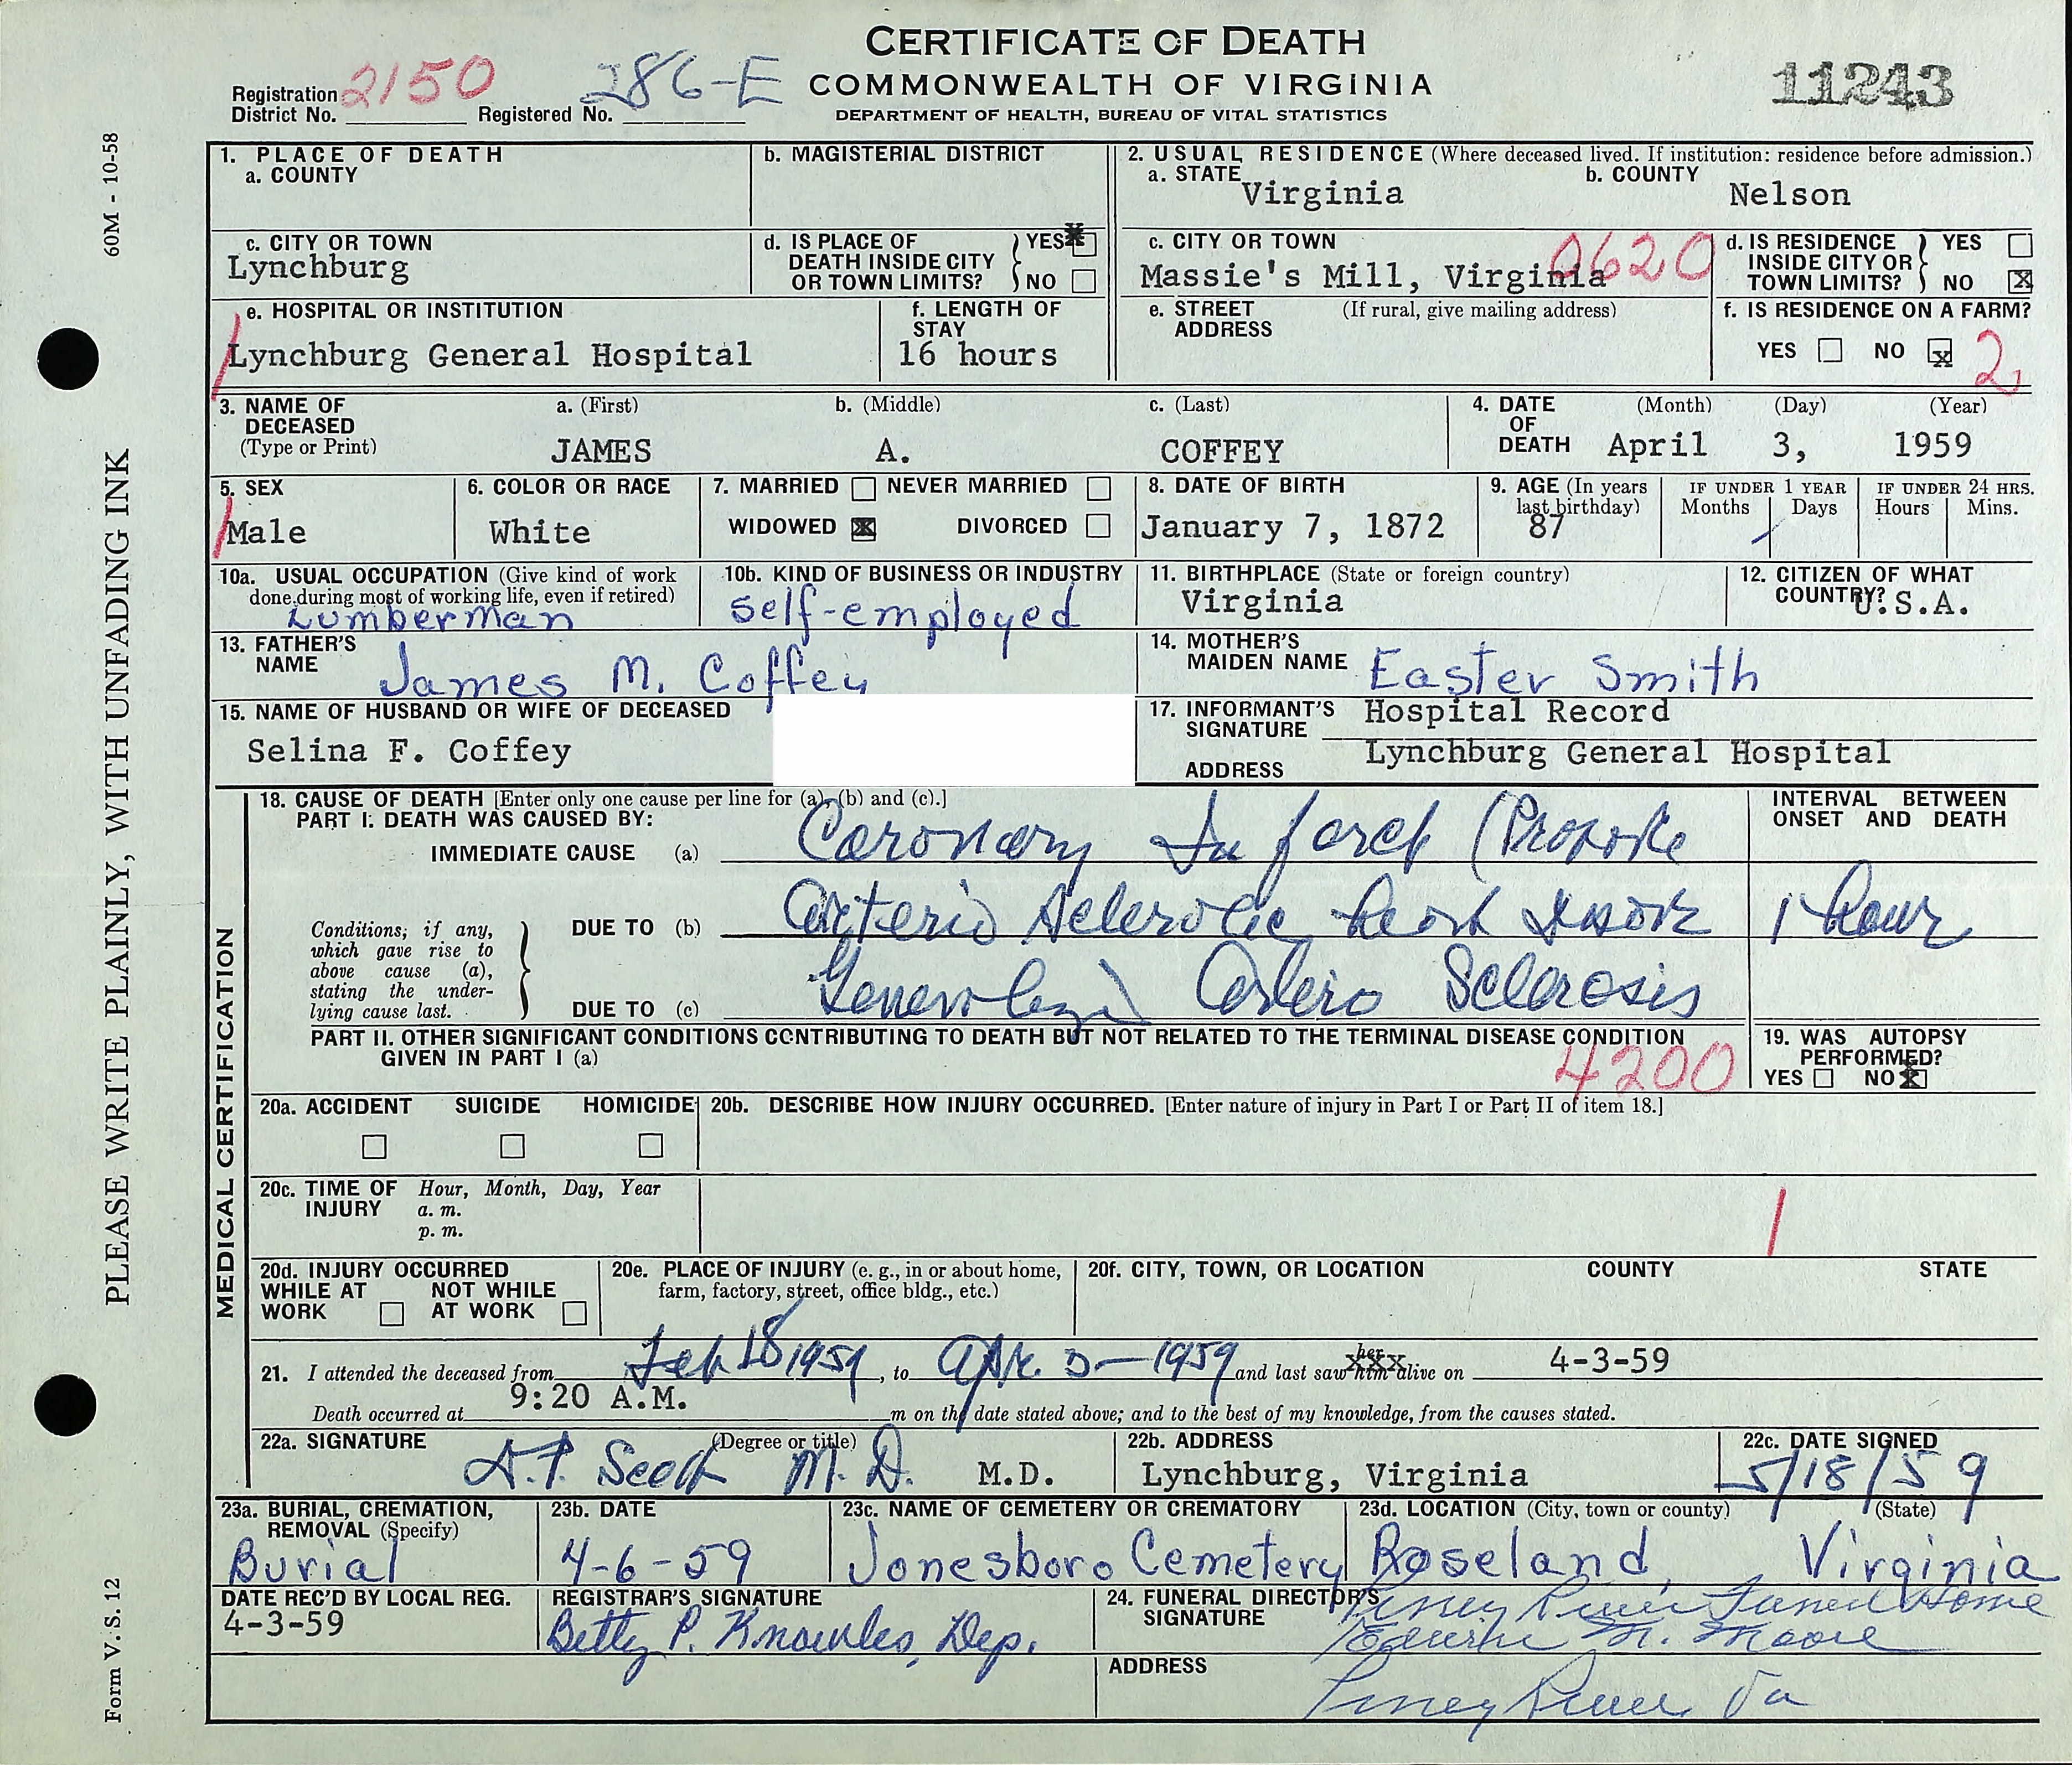 CERTIFICATE OF DEATH
COMMONWEALTH OF VIRGINIA
DEPARTMENT OF HEALTH, BUREAU OF VITAL STATISTICS
11243
Registration District No. 2150 Registered No. 286-E
60M - 10-58
PLEASE WRITE PLAINLY, WITH UNFADING INK
Form V. S. 12
1. PLACE OF DEATH
a. COUNTY
b. MAGISTERIAL DISTRICT
2. USUAL RESIDENCE (Where deceased lived. If institution: residence before admission.)
a. STATE Virginia
b. COUNTY Nelson
c. CITY OR TOWN
Lynchburg
d. IS PLACE OF DEATH INSIDE CITY OR TOWN LIMITS? YES X NO
c. CITY OR TOWN
Massie's Mill, Virginia 0620
d. IS RESIDENCE INSIDE CITY OR TOWN LIMITS? YES NO X
e. HOSPITAL OR INSTITUTION
Lynchburg General Hospital
f. LENGTH OF STAY
16 hours
e. STREET ADDRESS (If rural, give mailing address)
f. IS RESIDENCE ON A FARM?
YES NO X 2
3. NAME OF DECEASED (Type or Print)
a. (First) b. (Middle) c. (Last)
JAMES A. COFFEY
4. DATE OF DEATH (Month) (Day) (Year)
April 3, 1959
5. SEX
Male
6. COLOR OR RACE
White
7. MARRIED NEVER MARRIED
WIDOWED X DIVORCED
8. DATE OF BIRTH
January 7, 1872
9. AGE (In years last birthday)
87
IF UNDER 1 YEAR
Months Days
IF UNDER 24 HRS.
Hours Mins.
10a. USUAL OCCUPATION (Give kind of work done during most of working life, even if retired)
Lumberman
10b. KIND OF BUSINESS OR INDUSTRY
self-employed
11. BIRTHPLACE (State or foreign country)
Virginia
12. CITIZEN OF WHAT COUNTRY?
U.S.A.
13. FATHER'S NAME
James M. Coffey
14. MOTHER'S MAIDEN NAME
Easter Smith
15. NAME OF HUSBAND OR WIFE OF DECEASED
Selina F. Coffey
17. INFORMANT'S SIGNATURE Hospital Record
ADDRESS Lynchburg General Hospital
MEDICAL CERTIFICATION
18. CAUSE OF DEATH [Enter only one cause per line for (a), (b) and (c).]
PART I. DEATH WAS CAUSED BY:
INTERVAL BETWEEN ONSET AND DEATH
IMMEDIATE CAUSE (a) Coronary Infarct
Conditions, if any, which gave rise to above cause (a), stating the underlying cause last.
DUE TO (b) Arterio Sclerotic heart 1 hour
DUE TO (c) Generalized Arterio Sclerosis
PART II. OTHER SIGNIFICANT CONDITIONS CONTRIBUTING TO DEATH BUT NOT RELATED TO THE TERMINAL DISEASE CONDITION GIVEN IN PART I (a)
4200
19. WAS AUTOPSY PERFORMED?
YES NO X
20a. ACCIDENT SUICIDE HOMICIDE
20b. DESCRIBE HOW INJURY OCCURRED. [Enter nature of injury in Part I or Part II of item 18.]
20c. TIME OF INJURY Hour, Month, Day, Year
a. m.
p. m.
1
20d. INJURY OCCURRED
WHILE AT WORK NOT WHILE AT WORK
20e. PLACE OF INJURY (e. g., in or about home, farm, factory, street, office bldg., etc.)
20f. CITY, TOWN, OR LOCATION COUNTY STATE
21. I attended the deceased from Feb 18 1959, to Apr. 3-1959 and last saw her alive on 4-3-59
Death occurred at 9:20 A.M. m on the date stated above; and to the best of my knowledge, from the causes stated.
22a. SIGNATURE (Degree or title)
A.P. Scott M.D. M.D.
22b. ADDRESS
Lynchburg, Virginia
22c. DATE SIGNED
5/18/59
23a. BURIAL, CREMATION, REMOVAL (Specify)
Burial
23b. DATE
4-6-59
23c. NAME OF CEMETERY OR CREMATORY
Jonesboro Cemetery
23d. LOCATION (City, town or county) (State)
Roseland, Virginia
DATE REC'D BY LOCAL REG.
4-3-59
REGISTRAR'S SIGNATURE
Betty P. Knowles, Dep.
24. FUNERAL DIRECTOR'S SIGNATURE
Piney River Funeral Home
M. Moore
ADDRESS
Piney River Va